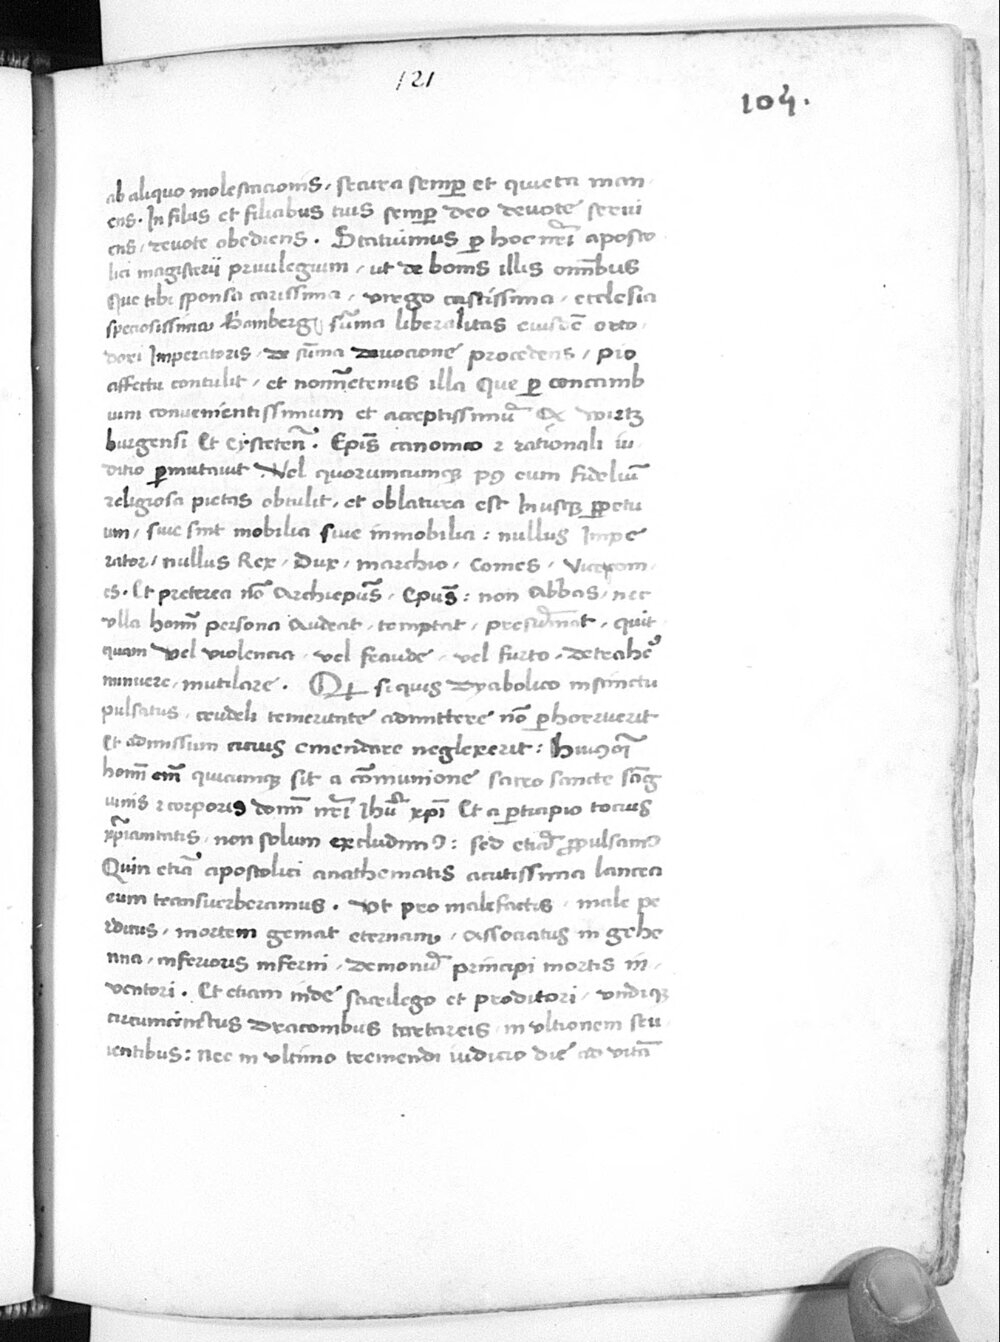 121
104.
ab aliquo molestacionis, secura semꝑ et quieta man
ens. In filiis et filiabus tuis semꝑ deo deuote serui
ens, deuote obediens. Statuimus ꝑ hoc nr̄i aposto
lici magisterij priuilegium, ut de bonis illis om̄ibus
Que tibi sponsa carissima, virego castissima, ecclesia
speciosissima Bamberg̃ sum̄a liberalitas eiusdē orto
doxi Imperatoris, de sum̄a deuocione procedens, pio
affectu contulit, et nom̄etenus illa Que ꝑ concamb
ium conuenientissimum et acceptissimū Ex wirtz
burgensi Et eisteten̄. Epis̄ canonico ⁊ rationali iu
ditio ꝑmutauit Vel quorumcumqꝫ pꝯ eum fideliū
religiosa pietas obtulit, et oblatura est In usqꝫ ꝑpetu
um, siue sint mobilia siue immobilia: nullus Impe
rator, nullus Rex, Dux, marchio, Comes, Vicecom
es. Et preterea nō Archiepus̄, Epus̄: non Abbas, nec
vlla hom̄ persona Audeat, temptat, presumat, quit
quam vel violencia, vel feaude, vel furto, detrahe᷒
minuere, mutilare. Qđ si quis Dyabolico instinctu
pulsatus, crudeli temeritate admittere nō ꝑhorruerit
Et admissum cicius emendare neglexerit: Huiꝯmōi
hom̄ em̄ quicumqꝫ sit a cōmunione sacro sancte sāg
uinis ⁊ corporis domī nr̄i Ihū xp̄i Et a ꝑticipio tocius
xp̄ianitatis, non solum excludimꝯ: sed etiā ꝓpulsamꝯ
Quin etiā apostolici anathematis acutissima lancea
eum transuerberamus. Vt pro malefactis, male pe
rditus, mortem gemat eternam, Associatus in gehe
nna, inferioris inferni, demoniū principi mortis in
uentori. Et etiam inde sacrilego et proditori, vndiqꝫ
circumcinctus Draconibus tartareis, in vltionem seu
ientibus: nec in vltimo tremendi iudicio die ad vitā